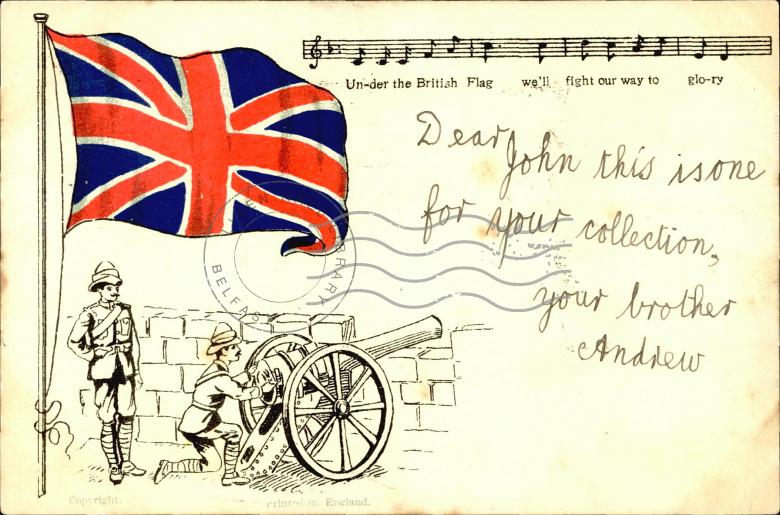 Un-der the British Flag we'll fight our way to glo-ry
Dear John this is one
for your collection,
your brother
Andrew
LIBRARY
BELFAST
Copyright.
Printed in England.